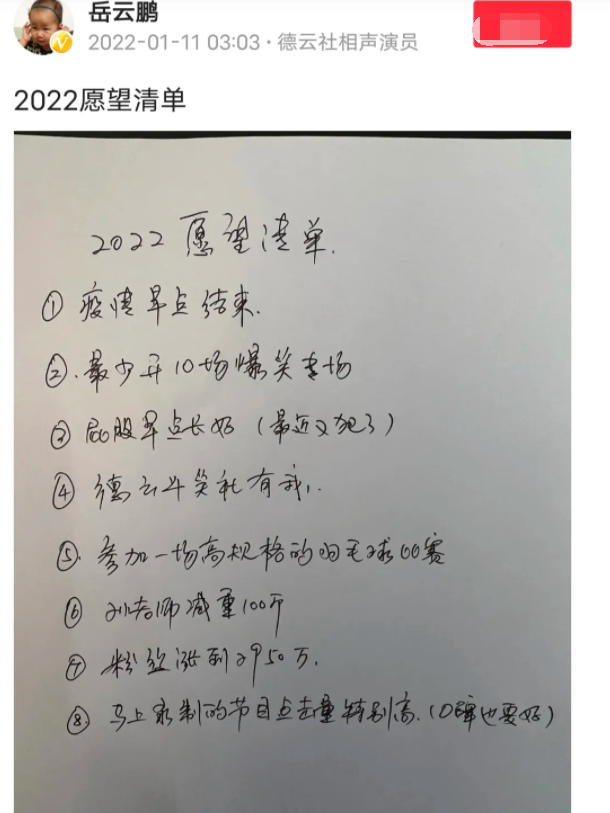 岳云鹏
2022-01-11 03:03 · 德云社相声演员
2022愿望清单
2022愿望清单.
① 疫情早点结束.
②. 最少开10场爆笑专场
③ 屁股早点长好（最近又犯了）
④ 德云斗笑社有我!.
⑤. 参加一场高规格的羽毛球比赛
⑥ 孙老师减重100斤
⑦ 粉丝涨到2950万.
⑧. 马上录制的节目点击量特别高.（口碑也要好）